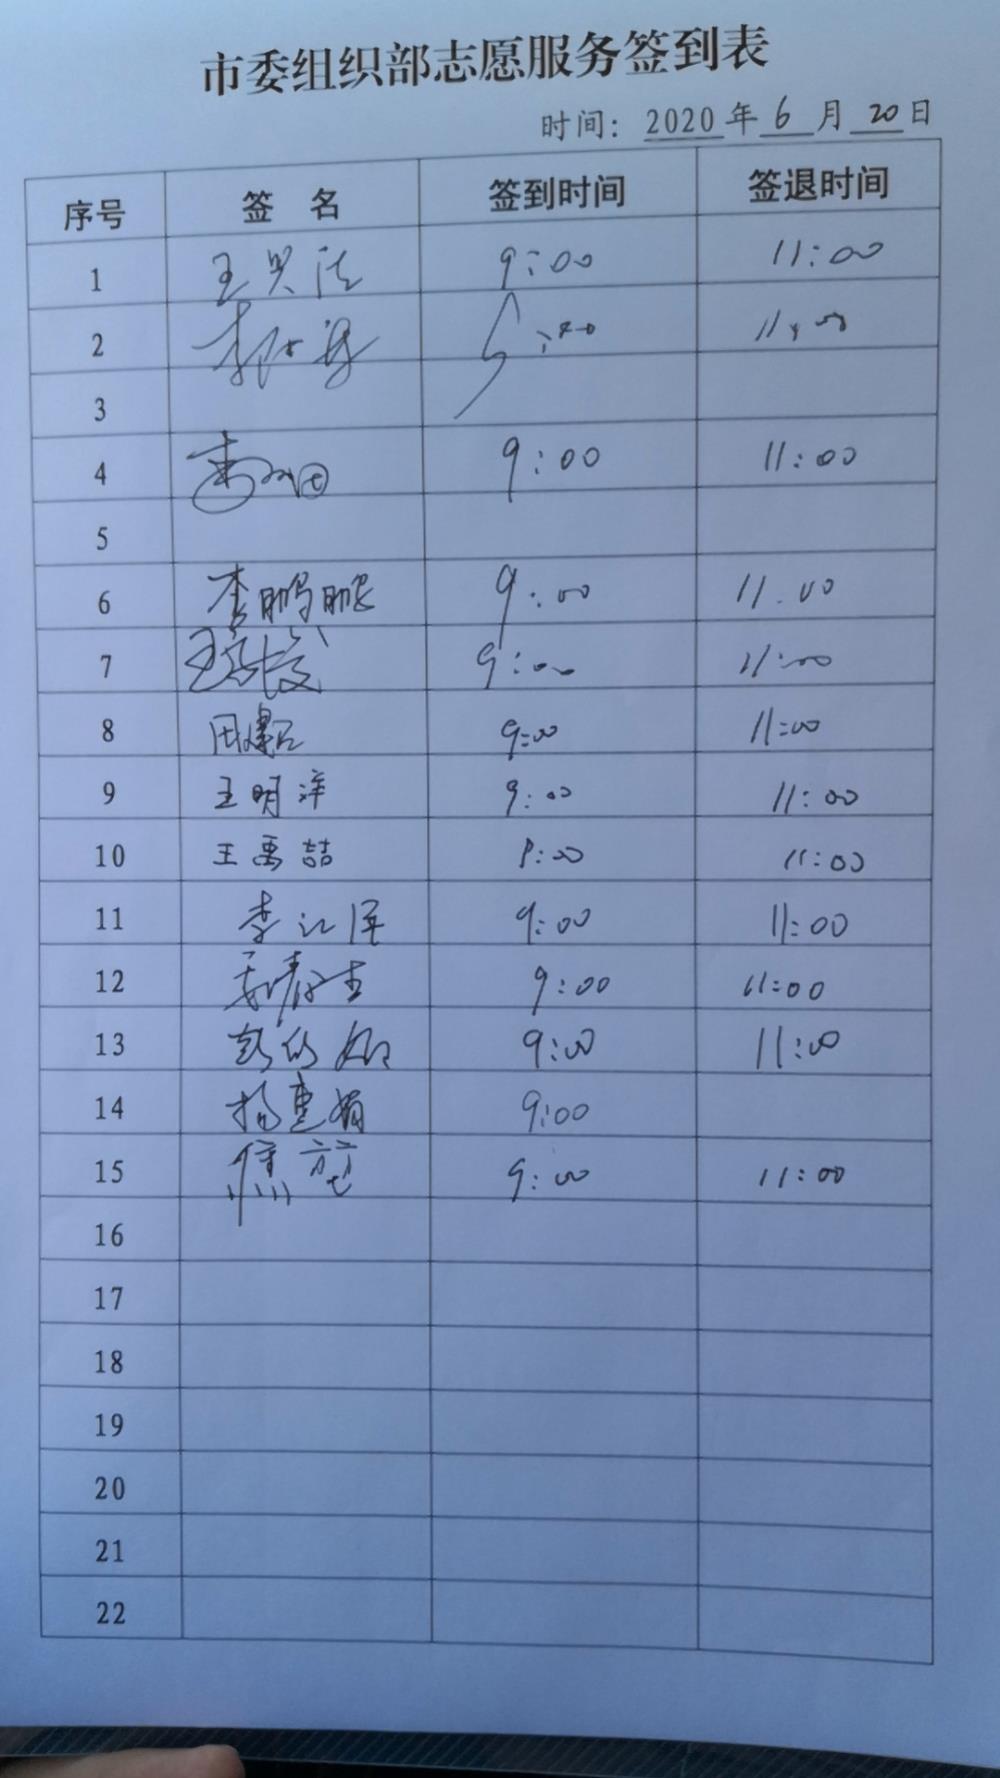 市委组织部志愿服务签到表
时间：2020年6月20日
序号 签 名 签到时间 签退时间
1 王兴法 9:00 11:00
2 11:00
3
4 9:00 11:00
5
6 李鹏鹏 9:00 11.00
7 9:00 11:00
8 田 9:00 11:00
9 王明洋 9:00 11:00
10 王禹喆 9:00 11:00
11 李江泽 9:00 11:00
12 9:00 11:00
13 彭 9:00 11:00
14 杨惠娟 9:00
15 焦 9:00 11:00
16
17
18
19
20
21
22